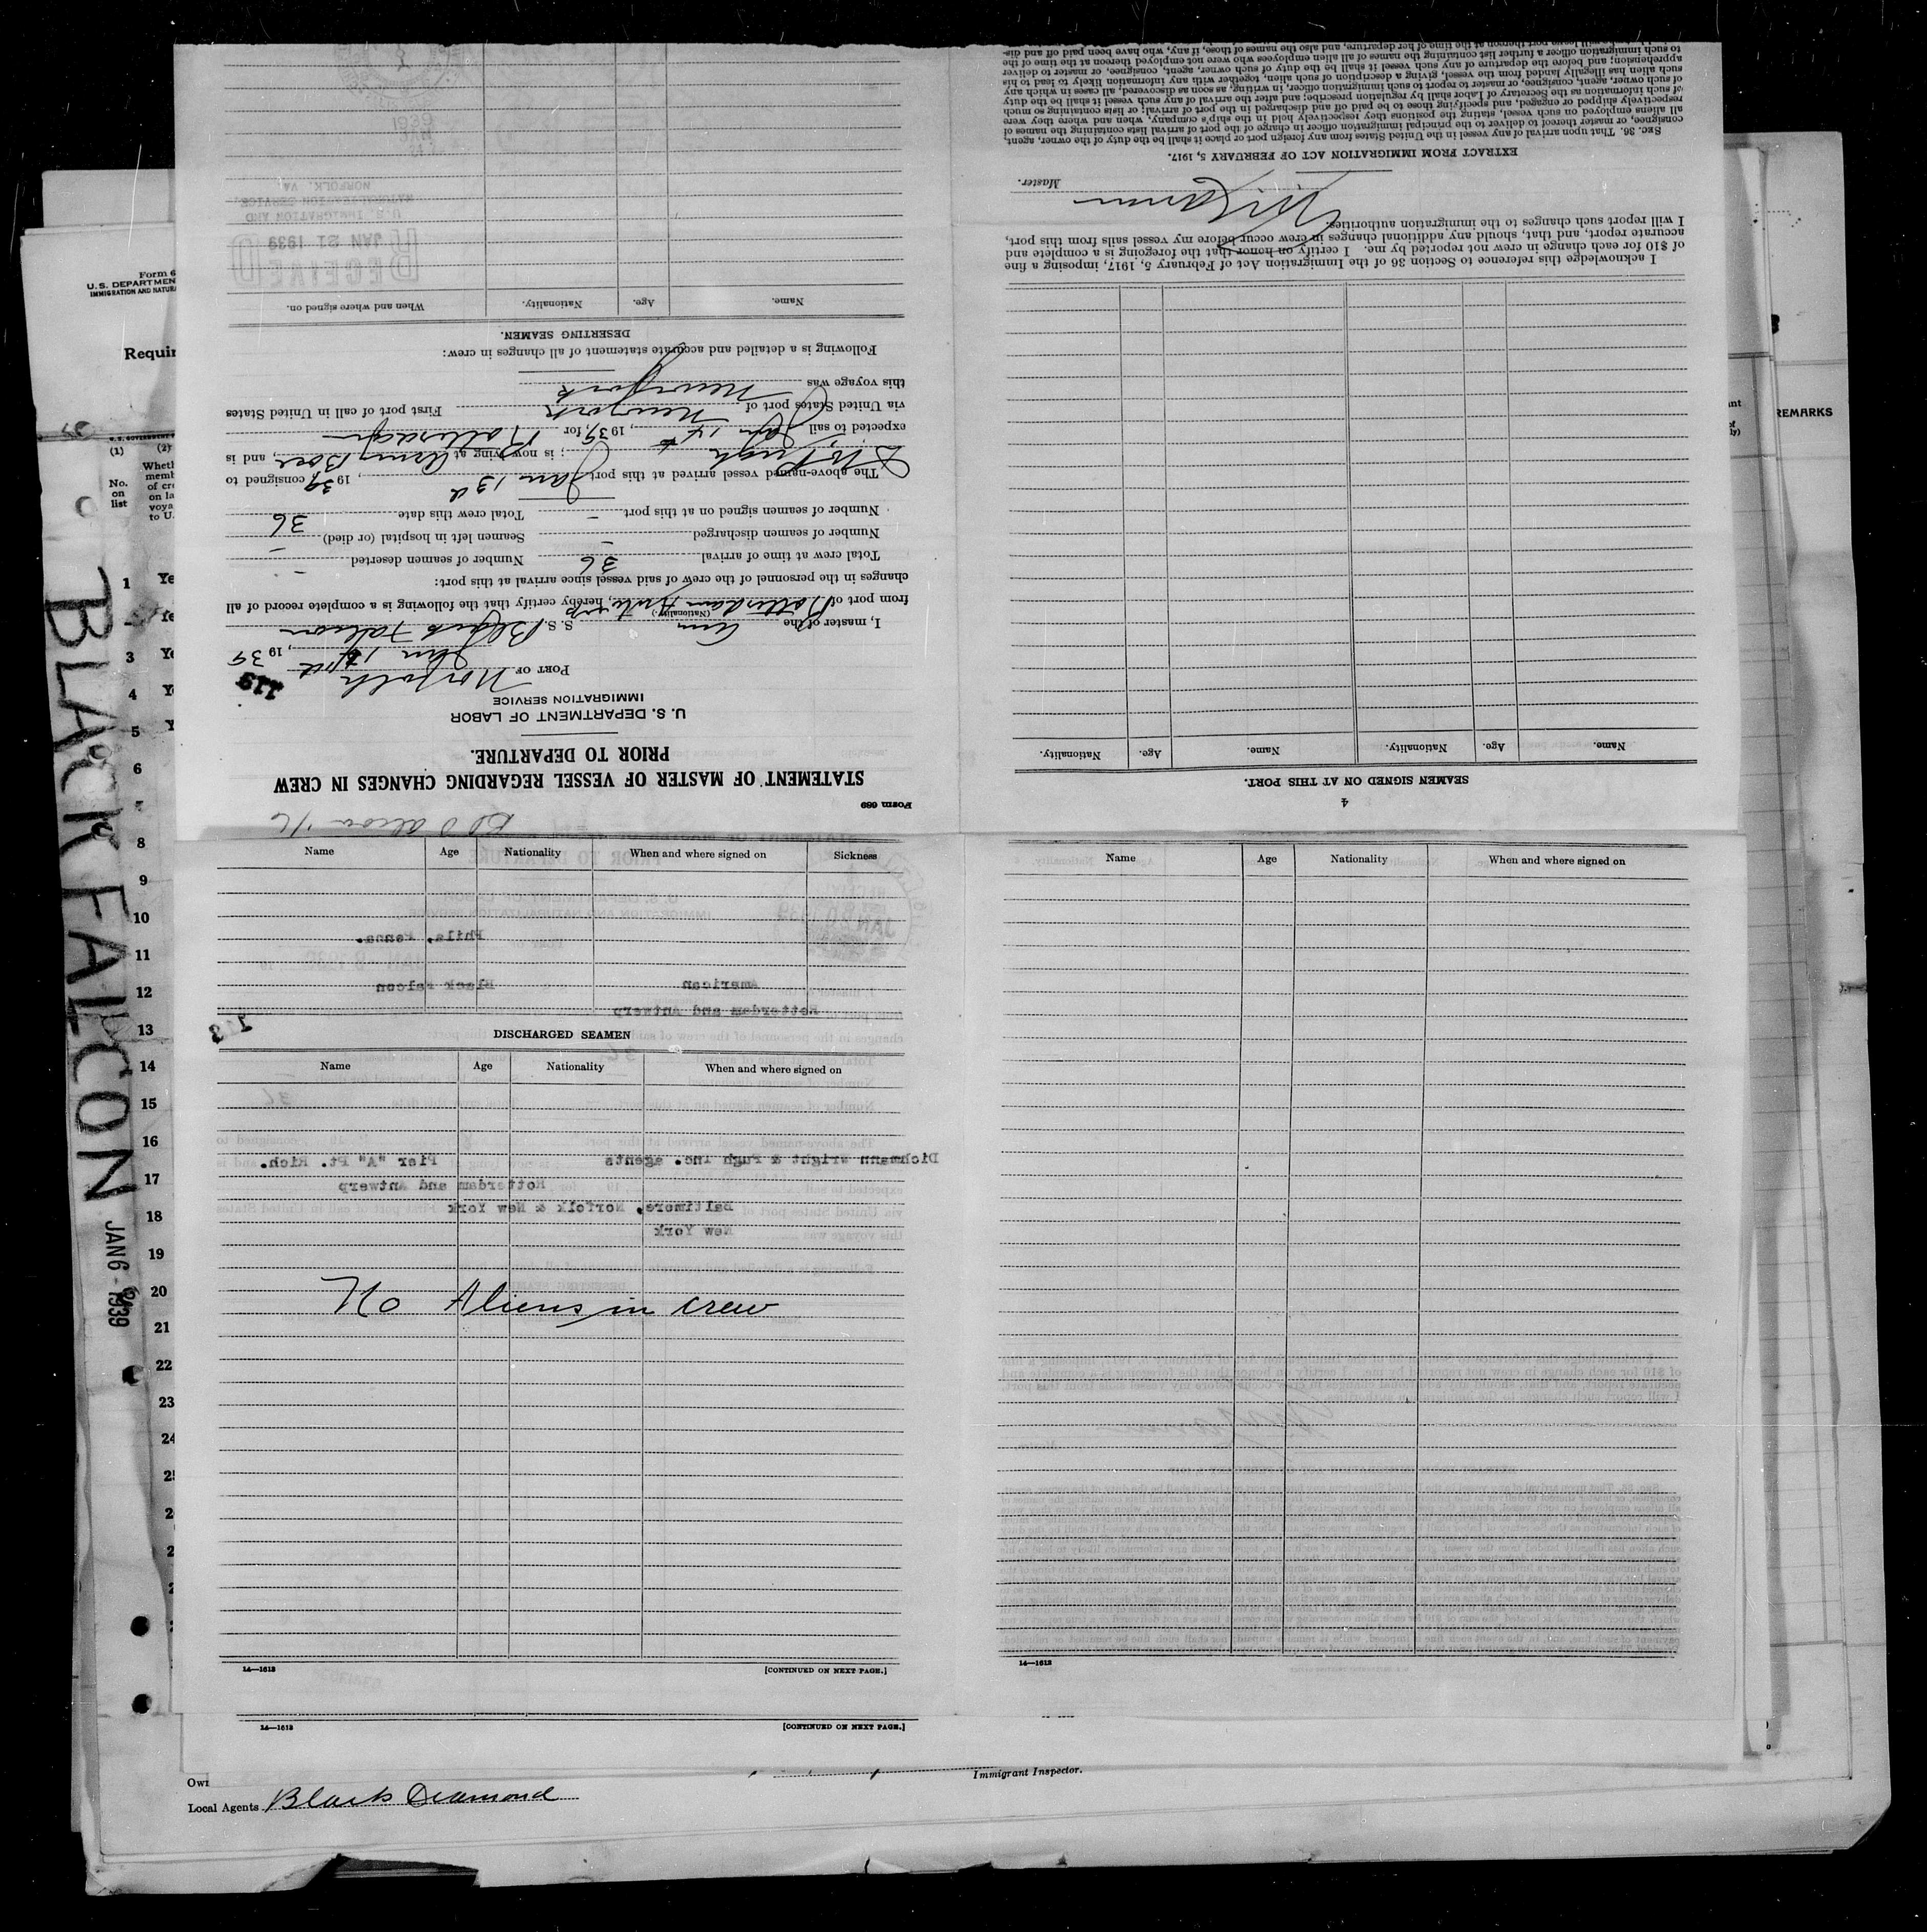 Form 689
STATEMENT OF MASTER OF VESSEL REGARDING CHANGES IN CREW
PRIOR TO DEPARTURE.
U. S. DEPARTMENT OF LABOR
IMMIGRATION SERVICE
119
PORT OF Norfolk
, 19 39
I, master of the Am S. S. Black Falcon
(Nationality)
from port of Rotterdam Antwerp, hereby certify that the following is a complete record of all
changes in the personnel of the crew of said vessel since arrival at this port:
Total crew at time of arrival 36 Number of seamen deserted –
Number of seamen discharged – Seamen left in hospital (or died) –
Number of seamen signed on at this port – Total crew this date 36
The above-named vessel arrived at this port Jan 13th, 19 39 consigned to
; is now lying at Army Base, and is
expected to sail Jan 14th, 19 39, for Rotterdam
via United States port of New York First port of call in United States
this voyage was New York
Following is a detailed and accurate statement of all changes in crew:
DESERTING SEAMEN.
Name. Age. Nationality. When and where signed on.
RECEIVED
JAN 21 1939
U. S. IMMIGRATION AND
NATURALIZATION SERVICE.
NORFOLK. VA.
1939
4
SEAMEN SIGNED ON AT THIS PORT.
Name. Age. Nationality. Name. Age. Nationality.
I acknowledge this reference to Section 36 of the Immigration Act of February 5, 1917, imposing a fine
of $10 for each change in crew not reported by me. I certify on honor that the foregoing is a complete and
accurate report, and that, should any additional changes in crew occur before my vessel sails from this port,
I will report such changes to the immigration authorities.
Master.
EXTRACT FROM IMMIGRATION ACT OF FEBRUARY 5, 1917.
SEC. 36. That upon arrival of any vessel in the United States from any foreign port or place it shall be the duty of the owner, agent,
consignee, or master thereof to deliver to the principal immigration officer in charge of the port of arrival lists containing the names of
all aliens employed on such vessel, stating the positions they respectively held in the ship's company, when and where they were
respectively shipped or engaged, and specifying those to be paid off and discharged in the port of arrival; or lists containing so much
of such information as the Secretary of Labor shall by regulation prescribe; and after the arrival of any such vessel it shall be the duty
of such owner, agent, consignee, or master to report to such immigration officer, in writing, as soon as discovered, all cases in which any
such alien has illegally landed from the vessel, giving a description of such alien, together with any information likely to lead to his
apprehension; and before the departure of any such vessel it shall be the duty of such owner, agent, consignee, or master to deliver
to such immigration officer a further list containing the names of all alien employees who were not employed thereon at the time of the
arrival but who will leave port thereon at the time of her departure, and also the names of those, if any, who have been paid off and dis-
Form 6
U. S. DEPARTMEN
IMMIGRATION AND NATURA
Requir
(1) (2)
No.
on
list
Wheth
memb
of cre
on la
voya
to U.
1 Ye
Ye
3 Ye
4 Y
5 Y
6
7
8
9
10
11
12
13
14
15
16
17
18
19
20
21
22
23
24
BLACK FALCON
JAN 6 - 1939
REMARKS
Name Age Nationality When and where signed on Sickness
Phila, Penna.
American Black Falcon
Rotterdam and Antwerp
113
DISCHARGED SEAMEN
Name Age Nationality When and where signed on
Dichmann Wright & Pugh Inc. agents Pier "A" Pt. Rich.
Rotterdam and Antwerp
Baltimore, Norfolk & New York
New York
No Aliens in crew
14—1613 [CONTINUED ON NEXT PAGE.]
14—1613 [CONTINUED ON NEXT PAGE.]
Name Age Nationality When and where signed on
14—1613
Immigrant Inspector.
Local Agents Black Diamond